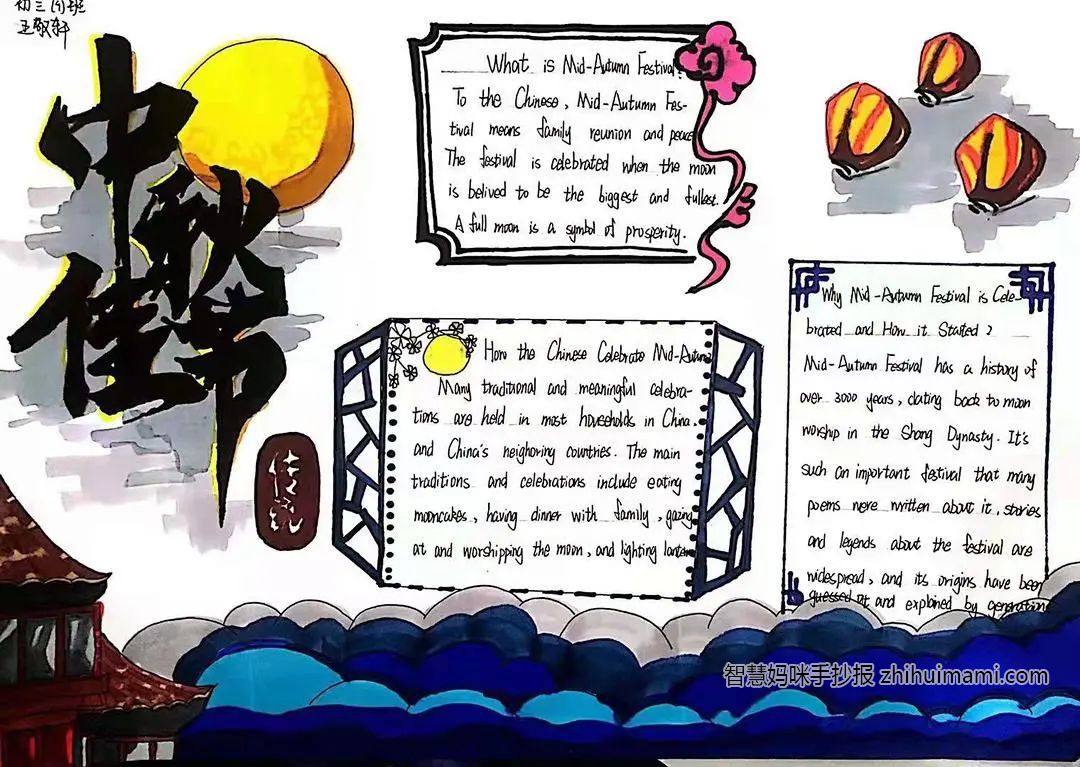 王敬轩
中秋
佳节
传统
What is Mid-Autumn Festival?
To the Chinese, Mid-Autumn Fes-
tival means family reunion and peace
The festival is celebrated when the moon
is belived to be the biggest and fullest.
A full moon is a symbol of prosperity.
How the Chinese Celebrate Mid-Autumn
Many traditional and meaningful celebra-
tions are held in most households in China.
and China's neighoring countries. The main
traditions and celebrations include eating
mooncakes, having dinner with family, gazing
at and worshipping the moon, and lighting lantern
Why Mid-Autumn Festival is Cele-
brated and How it Started?
Mid-Autumn Festival has a history of
over 3000 years, dating back to moon
worship in the Shang Dynasty. It's
such an important festival that many
poems were written about it, stories
and legends about the festival are
widespread, and its origins have been
guessed at and explained by generation
智慧妈咪手抄报 zhihuimami.com